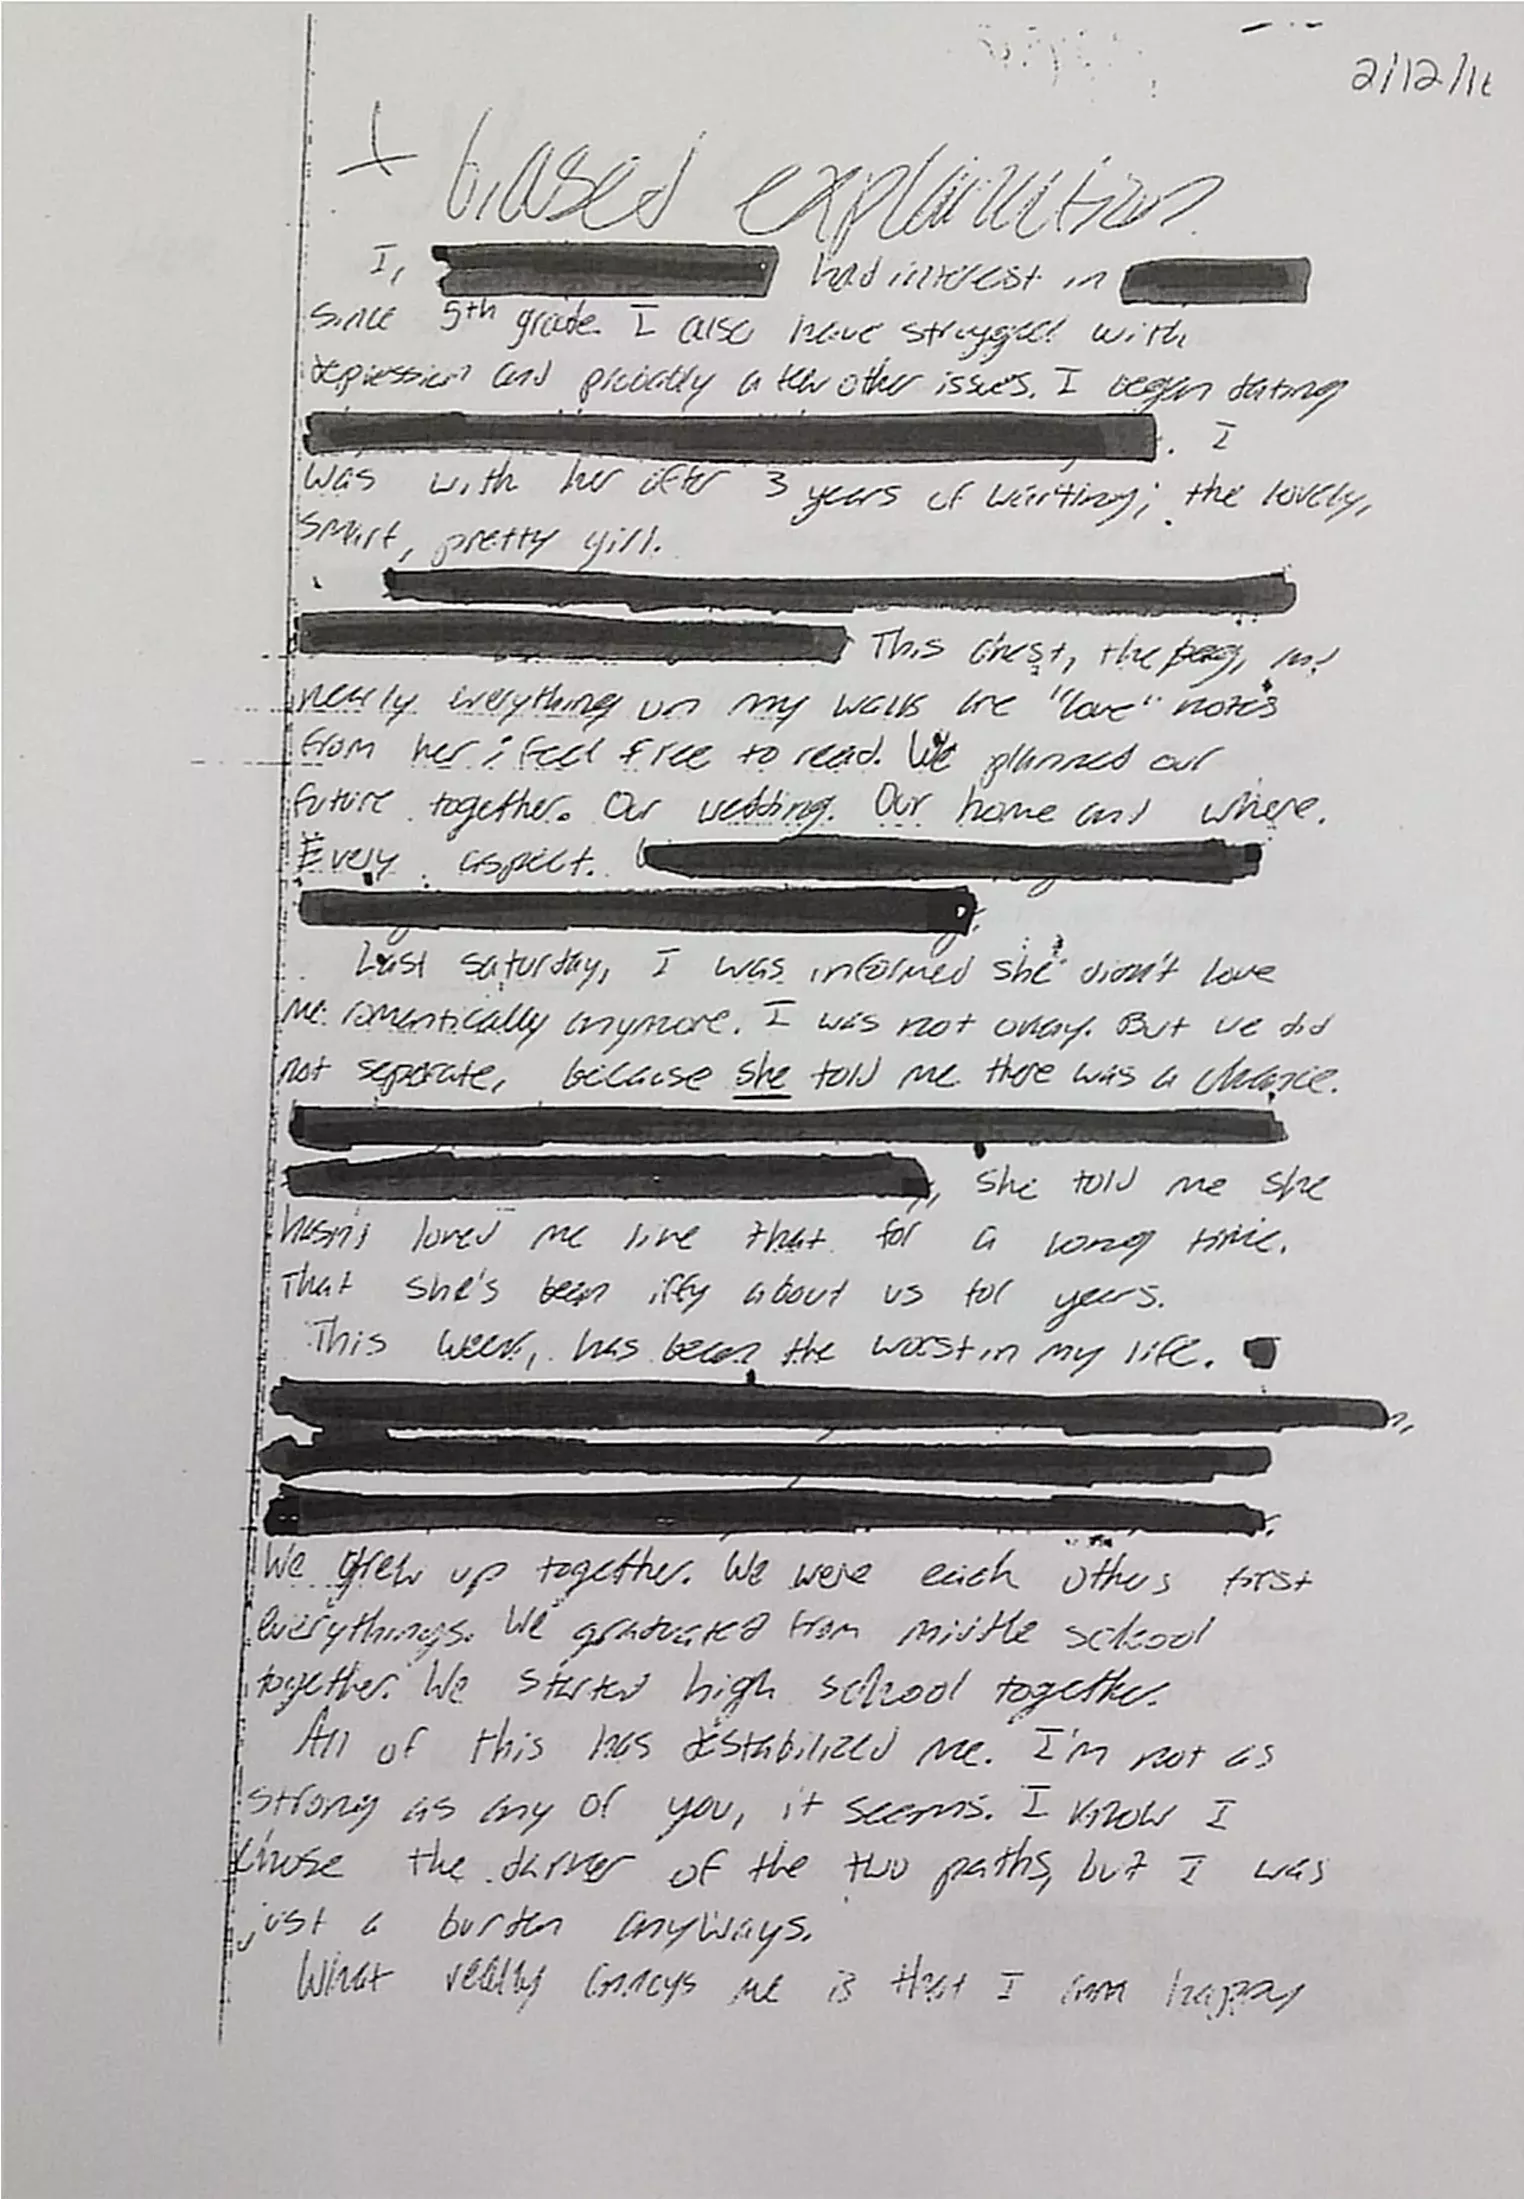 2/12/16
biased explanation
I, had interest in
since 5th grade. I also have struggled with
depression and probably a few other issues. I began dating
. I
was with her after 3 years of waiting; the lovely,
smart, pretty girl.
This chest, the bag, and
nearly everything on my walls are "love" notes
from her; feel free to read. We planned our
future together. Our wedding. Our home and where.
Every aspect.
Last saturday, I was informed she didn't love
me romantically anymore. I was not okay. But we did
not separate, because she told me there was a chance.
, she told me she
hasn't loved me like that for a long time.
That she's been iffy about us for years.
This week, has been the worst in my life.
We grew up together. We were each others first
everythings. We graduated from middle school
together. We started high school together.
All of this has destabilized me. I'm not as
strong as any of you, it seems. I know I
chose the darker of the two paths, but I was
just a burden anyways.
What really annoys me is that I am happy